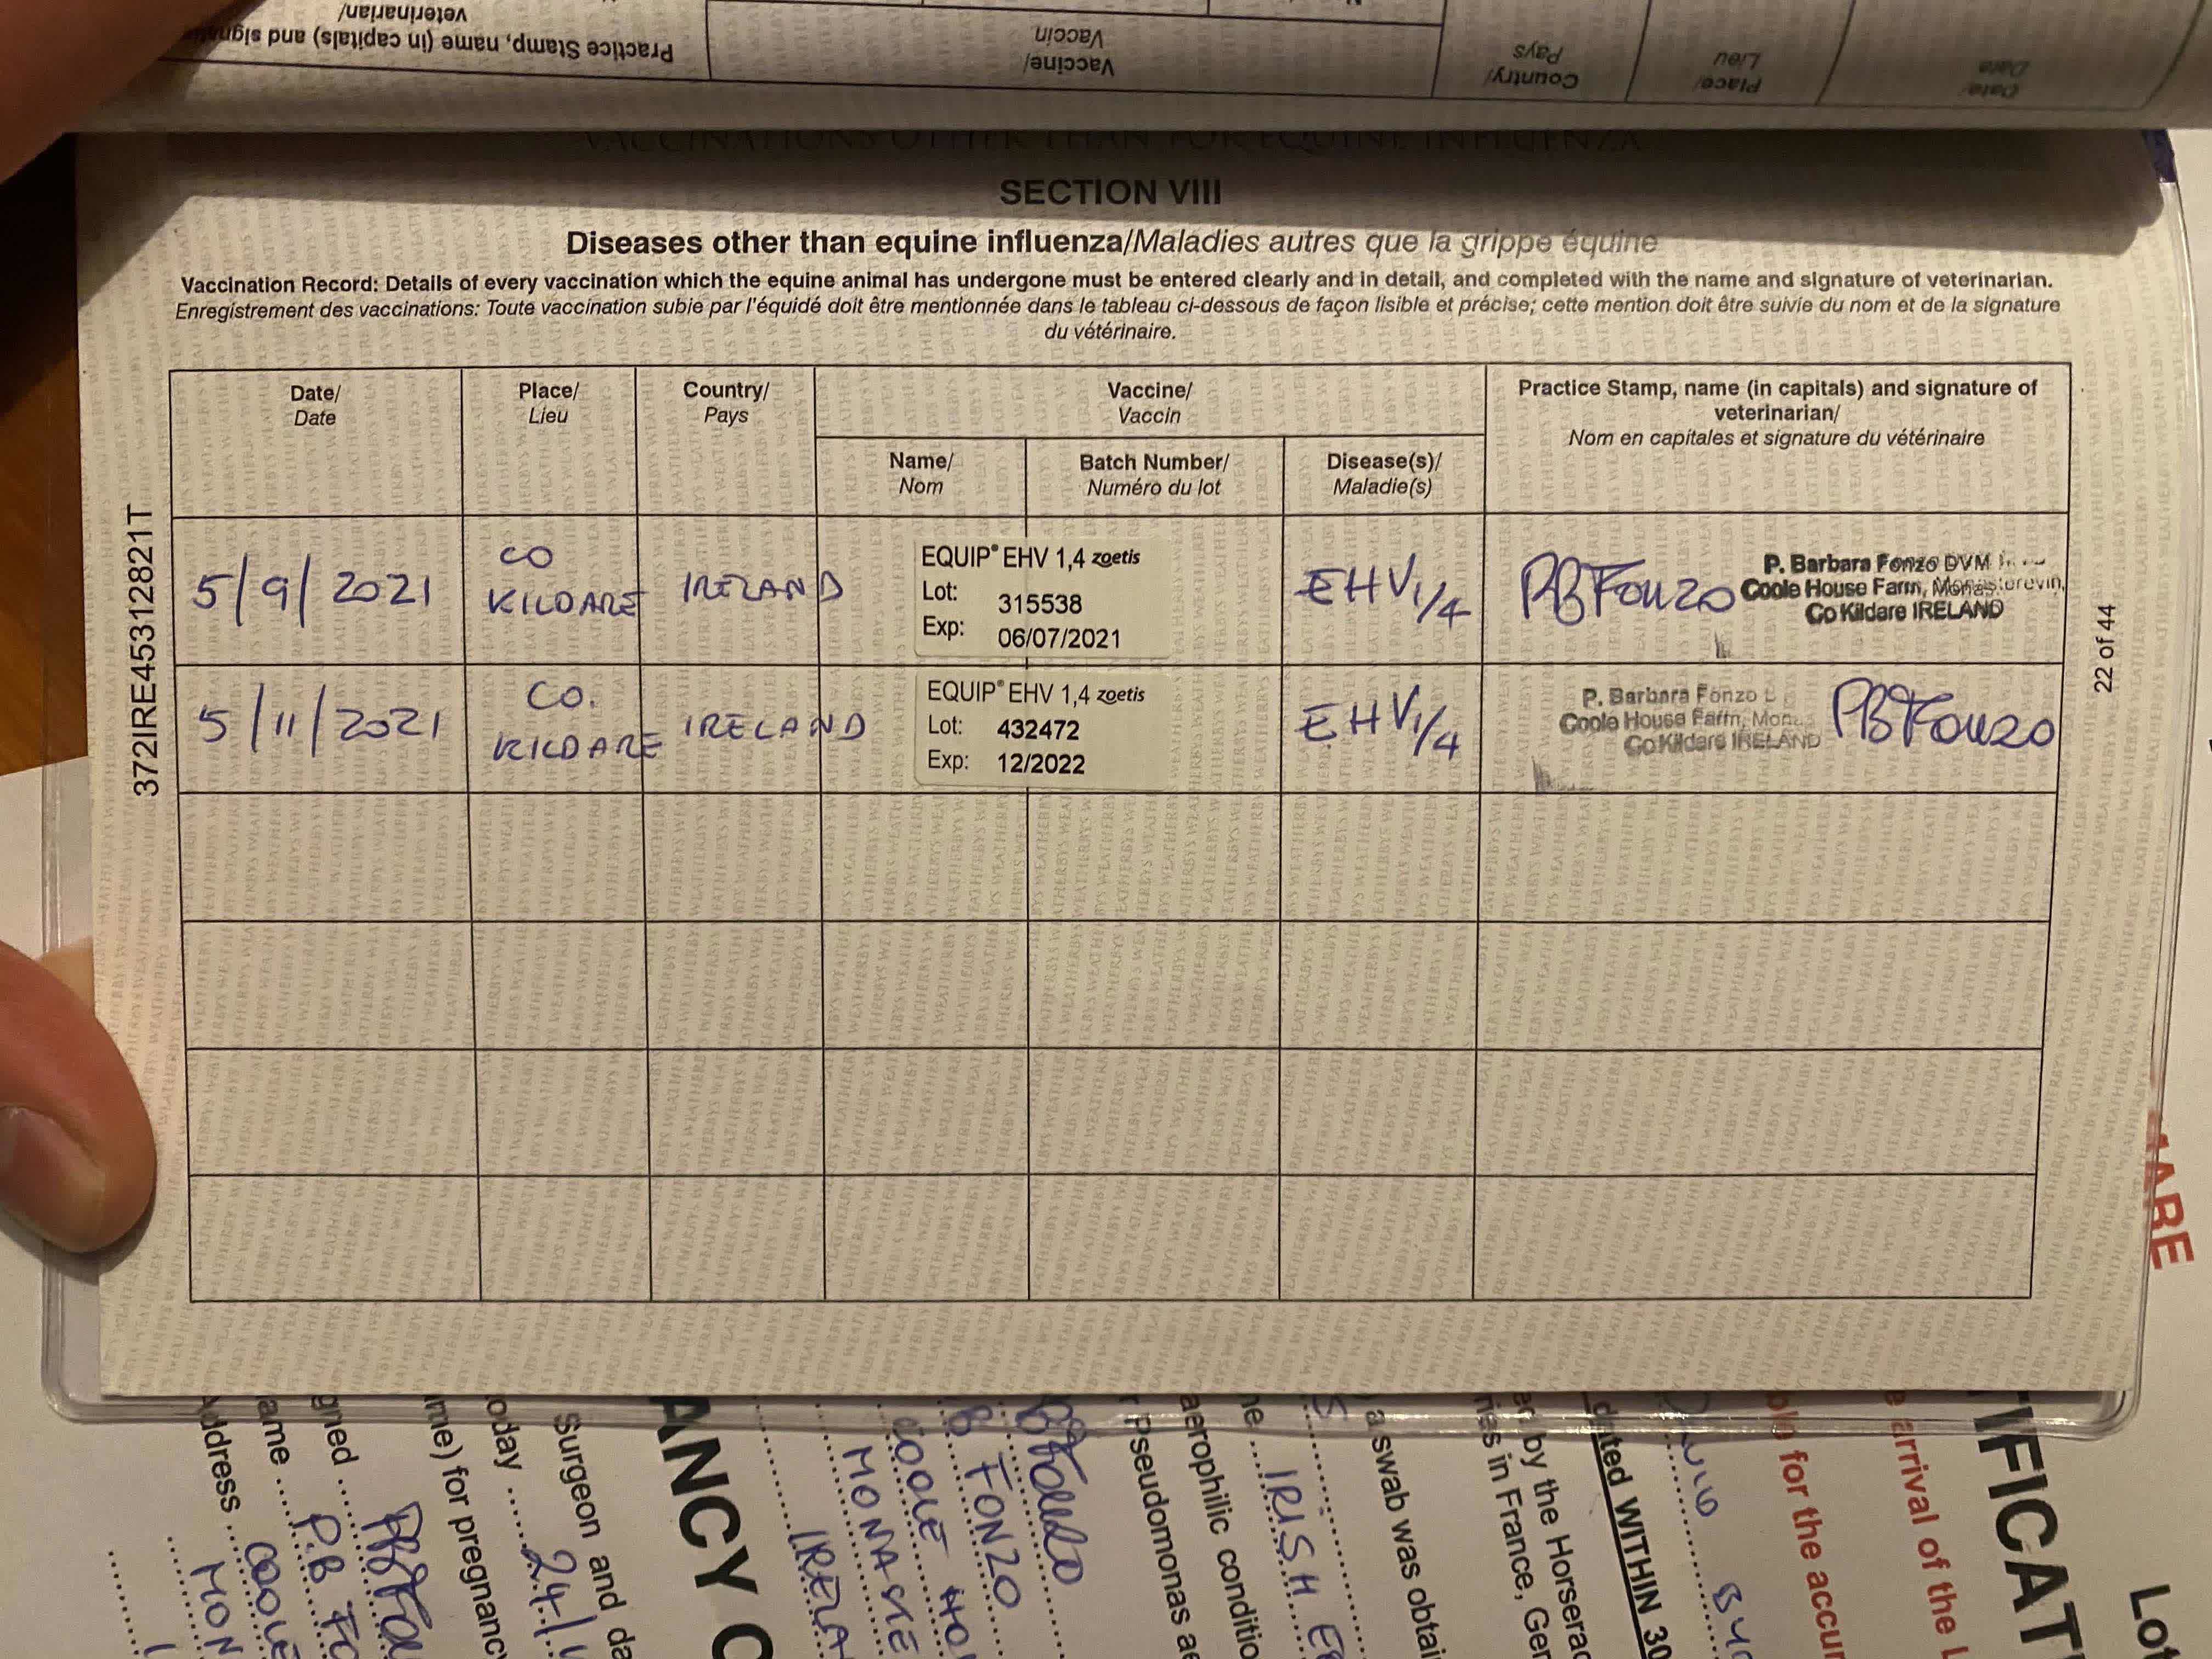 Practice Stamp, name (in capitals) and
veterinarian/
Vaccine/
Vaccin
Country/
Pays
Place/
Lieu
Date/
Date
VACCINATIONS OTHER THAN FOR EQUINE INFLUENZA
SECTION VIII
Diseases other than equine influenza/Maladies autres que la grippe équine
Vaccination Record: Details of every vaccination which the equine animal has undergone must be entered clearly and in detail, and completed with the name and signature of veterinarian.
Enregistrement des vaccinations: Toute vaccination subie par l'équidé doit être mentionnée dans le tableau ci-dessous de façon lisible et précise; cette mention doit être suivie du nom et de la signature
du vétérinaire.
Date/
Date
Place/
Lieu
Country/
Pays
Vaccine/
Vaccin
Name/
Nom
Batch Number/
Numéro du lot
Disease(s)/
Maladie(s)
Practice Stamp, name (in capitals) and signature of
veterinarian/
Nom en capitales et signature du vétérinaire
5/9/2021
CO
KILDARE
IRELAND
EQUIP® EHV 1,4 zoetis
Lot: 315538
Exp: 06/07/2021
EHV1/4
PBFonzo
P. Barbara Fonzo DVM
Coole House Farm, Monasterevin,
Co Kildare IRELAND
5/11/2021
CO.
KILDARE
IRELAND
EQUIP® EHV 1,4 zoetis
Lot: 432472
Exp: 12/2022
EHV1/4
P. Barbara Fonzo
Coole House Farm,
Co Kildare IRELAND
PBFonzo
372IRE45312821T
22 of 44
Lot
arrival of the
for the accur
WITHIN 30
by the Horserac
in France, Ger
a swab was obtai
IRISH
aerophilic conditio
Pseudomonas ae
B FONZO
COOLE HO
MONASTE
IRELA
ANCY C
Surgeon and da
oday ...... 24/
me) for pregnanc
gned
ame ...... P.B FO
Address ...... COOLE
MON